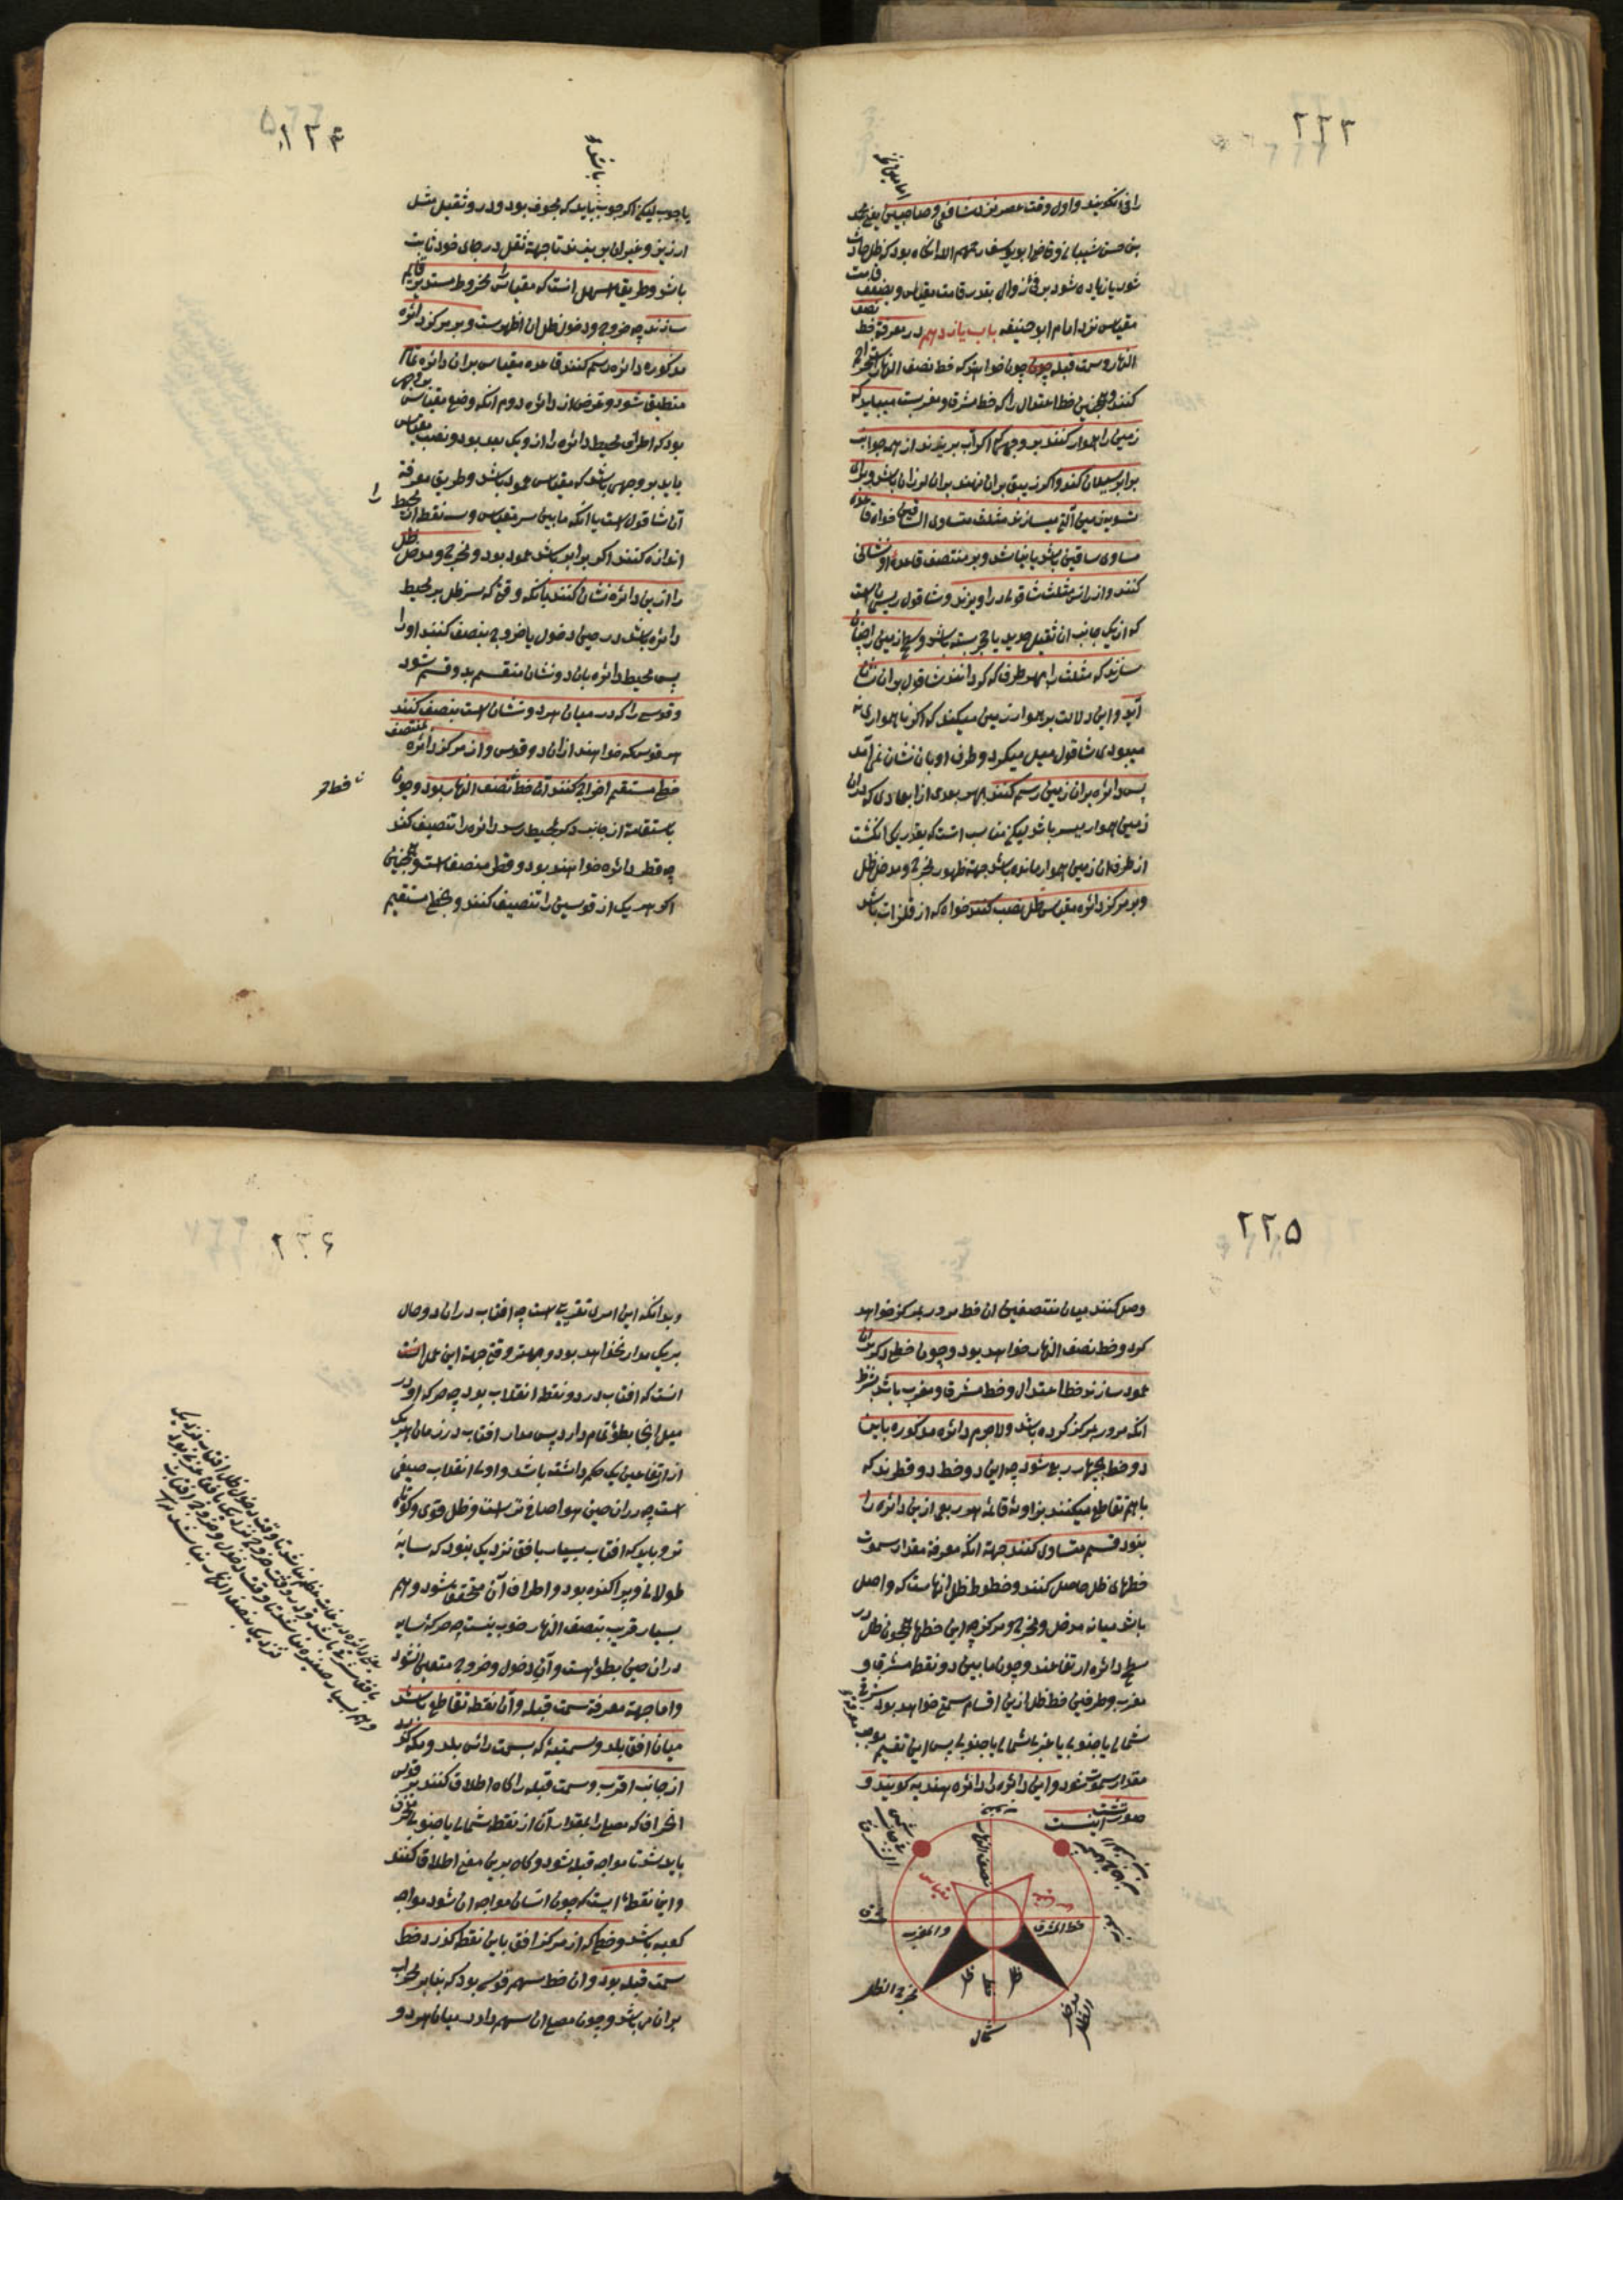 ۲۲۳
را فی‌ٔ گویند و اول وقت عصر نزد شافعی و صاحبین یعنی محمد
بن حسن شیبانی و قاضی ابو یوسف رحمهم الله انگاه بود که ظل حادث
شود یا زیاده شود بر فیٔ زوال بقدر قامت مقیاس و بضعف قامت
مقیاس نزد امام ابو حنیفه باب یازدهم در معرفة خط نصف
النهار و سمت قبله چون خواهند که خط نصف النهار استخراج
کنند و همچنین خط اعتدال را که خط مشرق و مغربست میباید که
زمین را هموار کنند بر وجهی که اگر آب بریزند از همه جوانب
برابر سیلان کند و اگر زیبق بران نهند بران لرزان باشد و برای
تسویه زمین آلة میسازند مثلث متساوی الساقین خواه قاعده
مساوی ساقین باشد یا نباشد و بر منتصف قاعده او نشانی
کنند و از راس مثلث شاقولی در آویزند و شاقول ریسمانیست
که از یک جانب ان ثقیل حدید یا حجر بسته باشد و سطح زمین را چنان
سازند که مثلث را بهر طرف که گردانند شاقول بران نشان
آید و این دلالت بر هموار زمین میکند که اگر ناهمواری
میبودی شاقول میل میکرد و طرف او بان نشان نمی آمد
پس دائره بران زمین رسم کنند بهر بعدی از ابعادی که بران
زمین هموار میسر باشد لیکن مناسب است که بقدر یک انگشت
از طرف ان زمین هموار مانده باشد جهة ظهور مخرج و مدخل ظل
و بر مرکز دائره مقیاس ظل نصب کنند خواه که از فلزات باشد
۲۲۴
باشد و
یا چوب لیکن اگر چوب باید که مجوف بود و درو ثقیل مثل
ارزیز و غیر ان بریزند تا جهة ثقل در جای خود ثابت
باشد و طریق اسهل انست که مقیاس را مخروط مستدیر قایم
سازند چه خروج و دخول ظل ان اظهرست و بر مرکز دائره
مذکوره دائره رسم کنند قاعده مقیاس بران دائره تمام
منطبق شود و غرض از دائره دوم انکه وضع مقیاس بر وجهی
بود که اطراف محیط دائره را از و یک بعد بود و نصب مقیاس
باید بر وجهی باشد که مقیاس عمود باشد و طریق معرفة
آن شاقول است یا انکه مابین سر مقیاس و سه نقطه از محیط را
اندازه کنند اگر برابر باشد عمود بود و مخرج و مدخل ظل
را ازین دائره نشان کنند بانکه وقتی که سر ظل بر محیط
دائره باشد در حین دخول یا خروج بنصف کنند او را
پس محیط دائره بان دو نشان منقسم بدو قسم شود
و قوسی را که در میان هر دو نشان است بنصف کنند
هر قوس که خواهند ازان دو قوس و از مرکز دائره بمنتصف
خطی مستقیم اخراج کنند آن خط نصف النهار بود و چون
باستقامت از جانب دیگر بمحیط رسد دائره را تنصیف کند
چه قطر دائره خواهند بود و قطر منصف است و همچنین
اگر هر یک از قوسین را تنصیف کنند و بخطی مستقیم
۲۲۵
وصل کنند میان منتصفین ان خط مرور بمرکز خواهد
کرد و خط نصف النهار خواهد بود و چون خطی دیگر بران
عمود سازند خط اعتدال و خط مشرق و مغرب باشد بشرط
انکه مرور بمرکز کرده باشد ولاجرم دائره مذکوره باین
دو خط بچهار ربع شود چه این دو خط دو قطرند که
باهم تقاطع میکنند بزاویهٔ قائمه هر ربعی ازین دائره را
بنود قسم متساوی کنند جهة انکه معرفة مقدار سموت
خطهای ظل حاصل کنند و خطوط ظل انهاست که واصل
باشد میانه مدخل و مخرج و مرکز چه این خطها همچون ظل در
سطح دائره ارتفاعند و چون مابین دو نقطه مشرق و
مغرب و طرفین خط ظل ازین اقسام سمت خواهد بود شرقی
شمالی یا جنوبی یا غربی شمالی یا جنوبی پس این تقسیم
مقدار سموت شود و این دائره را دائره هندیه گویند و
صورتش اینست
نصف النهار
خط المشرق
والمغرب
مقیاس
ظل
ظل
مخرج الظل
مدخل الظل
شمال
۲۲۶
و بدانکه این امری تقریبی است چه افتاب دران دو حال
بر یک مدار نخواهد بود و بهتر وقتی جهة این عمل انست
انست که افتاب در دو نقطه انقلاب بود چه حرکه او در
میل انجا بطؤ تمام دارد پس مدار افتاب در زمان هر یک
از ارتفاعین یک حکم داشته باشد و اولی انقلاب صیفی
است چه دران حین هوا صافی تر است و ظل قوی و کوتاه
تر و باید که افتاب بسیار بافق نزدیک نبود که سایه
طولانی و پراکنده بود و اطراف آن متحقق نشود و هم
بسیار قریب بنصف النهار خوب نیست چه حرکه سایه
دران حین بطؤ است و آن دخول و خروج متعین نشود
و اما جهة معرفة سمت قبله و آن نقطه تقاطع باشد
میان افق بلد و سمتیهٔ که بسمت راس بلد و مکه گذرد
از جانب اقرب و سمت قبله را گاه اطلاق کنند بر قوس
انحراف که مصلی را بمقدار آن از نقطه شمال یا جنوب منحرف
باید شد تا مواجه قبله شود و گاه بدین معنی اطلاق کنند
و این نقطهٔ ایست که چون انسان مواجه ان شود مواجه
کعبه باشد و خطی که از مرکز افق باین نقطه گذرد خط
سمت قبله بود و ان خط سهم قوسی بود که بنا بر محراب
بران می باشد و چون مصلی ان سهم دارد میان هر دو